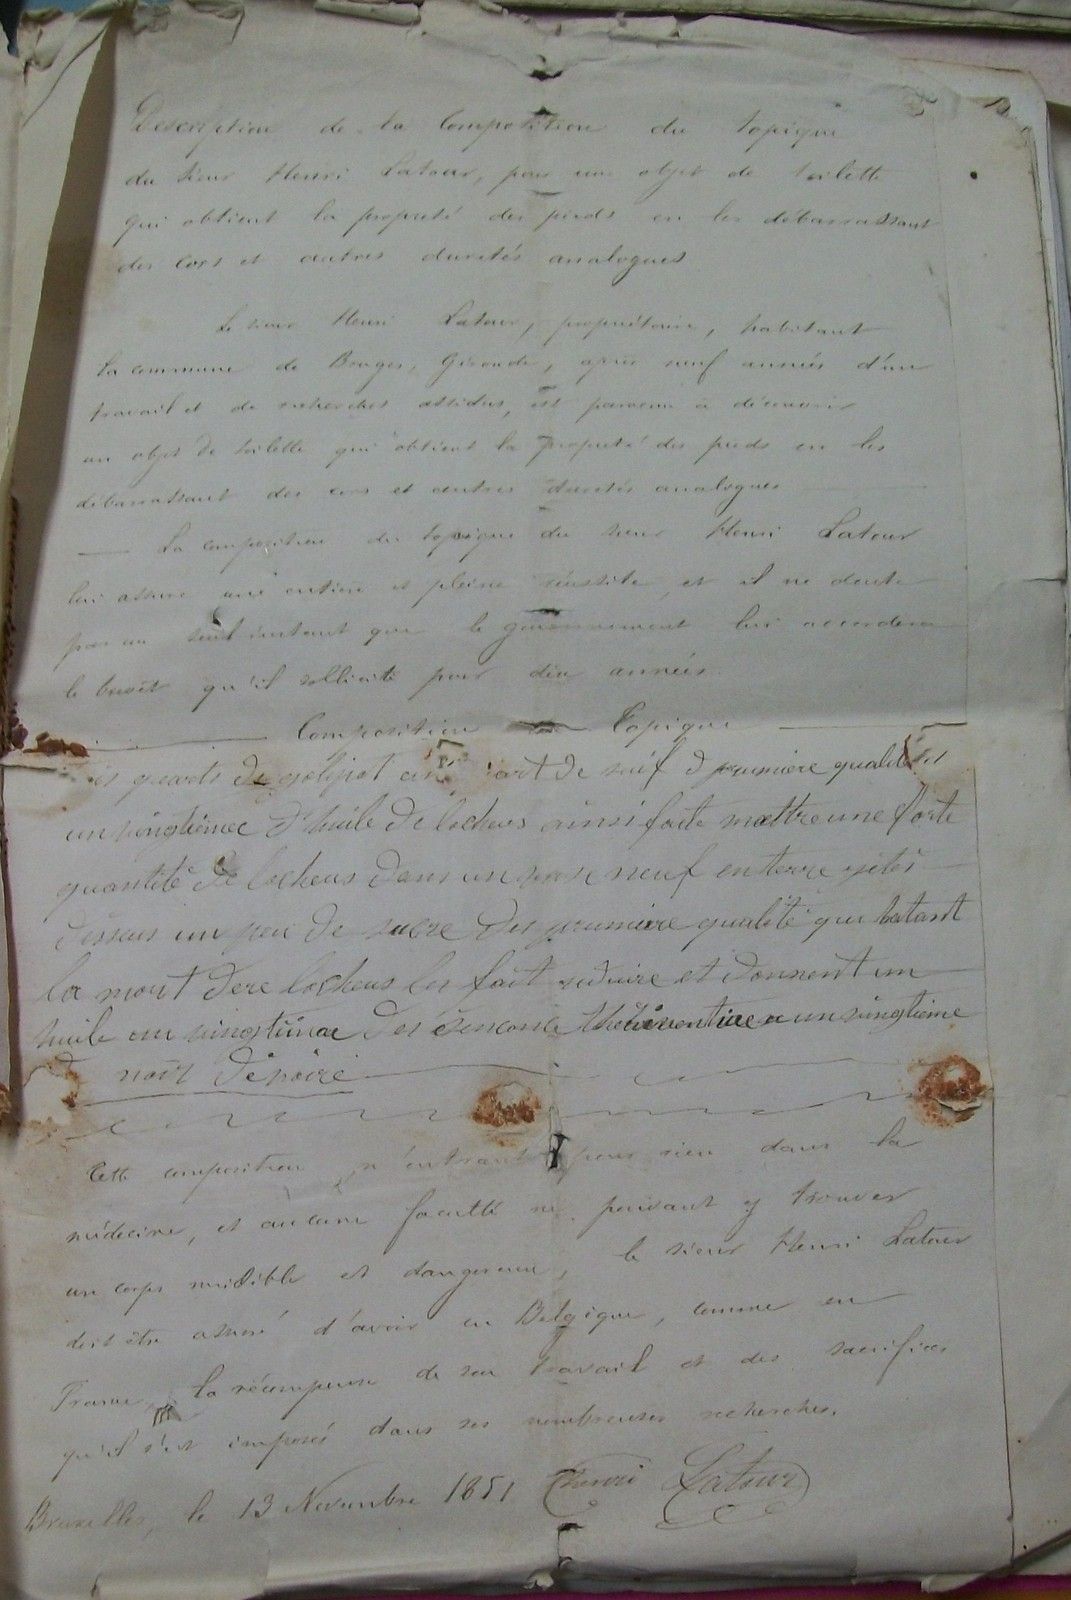 Description de la Composition du topique
du sieur Henri Latour, pour un objet de toilette
qui obtient la propreté des pieds en les débarrassant
des cors et autres duretés analogues
Le sieur Henri Latour, propriétaire, habitant
la commune de Bruges, Gironde, après neuf années d'un
travail et de recherches assidus, est parvenu à découvrir
un objet de toilette qui obtient la propreté des pieds en les
débarrassant des cors et autres duretés analogues
La composition du topique du sieur Henri Latour
lui assure une entière et pleine réussite, et il ne doute
pas un seul instant que le gouvernement lui accordera
le brevet qu'il sollicite pour dix années.
Composition Topique
quarts de galipot un quart de suif de premiere qualité et
un vingtieme d'huile de locheus ainsi faite mettre une forte
quantité de locheus dans un vase neuf en terre gités
dessus un peu de sucre des premiere qualité qui batant
la mort dere locheus les fait réduire et donnent un
huile un vingtieme des esence un vingtieme
noir
Cette composition n'entrant pour rien dans la
médecine, et aucune faculté ne pouvant y trouver
un corps nuisible et dangereux, le sieur Henri Latour
doit être assuré d'avoir en Belgique, comme en
France, la récompense de son travail et des sacrifices
qu'il s'est imposés dans ses nombreuses recherches.
Bruxelles, le 13 Novembre 1851 Henri Latour